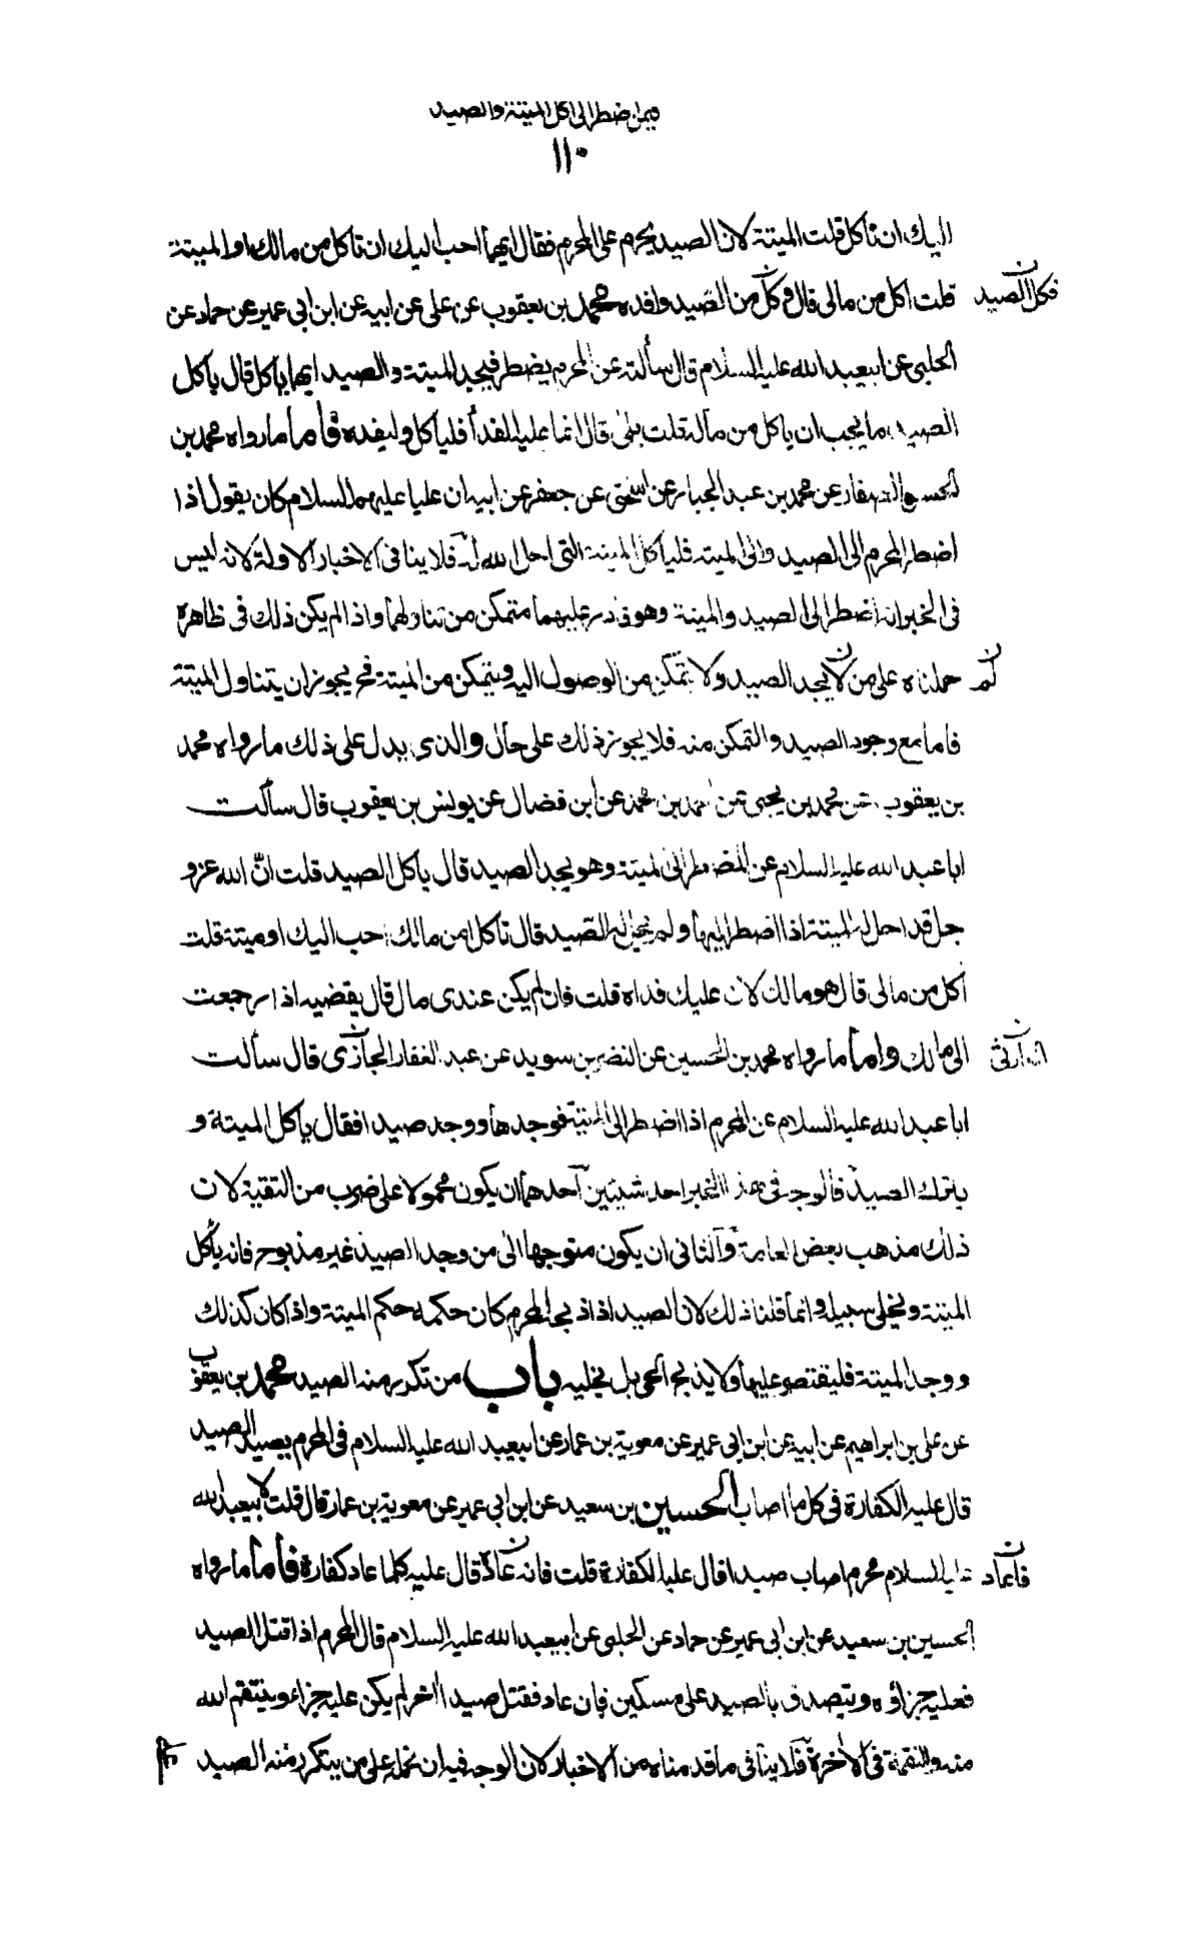 فيمن اضطر الى اكل الميتة والصيد
١١٠
اليك ان تاكل قلت الميتة لان الصيد يحرم على المحرم فقال ايهما احب اليك ان تاكل من مالك او الميتة
قلت اكل من مالى قال فكل من الصيد وافده محمد بن يعقوب عن على عن ابيه عن ابن ابى عمير عن حماد عن
فكل الصيد ن
الحلبى عن ابيعبد الله عليه السلام قال سألته عن المحرم يضطر فيجد الميتة والصيد ايهما ياكل قال ياكل
الصيد ما يجب ان ياكل من ماله قلت بلى قال انما عليه الفدأ فلياكل وليفده فأما ما رواه محمد بن
الحسن الصفار عن محمد بن عبد الجبار عن اسحق عن جعفر عن ابيه ان عليا عليهم السلام كان يقول اذا
اضطر المحرم الى الصيد والى الميتة فلياكل الميتة التى احل الله له فلا ينافى الاخبار الاولة لانه ليس
فى الخبر انه اضطر الى الصيد والميتة وهو قادر عليهما متمكن من تناولهما واذا لم يكن ذلك فى ظاهره
حملناه على من لا يجد الصيد ولا يتمكن من الوصول اليه ويتمكن من الميتة فح يجوز ان يتناول الميتة
لم ن
فاما مع وجود الصيد والتمكن منه فلا يجوز ذلك على حال والذى يدل على ذلك ما رواه محمد
بن يعقوب عن محمد بن يحيى عن احمد بن محمد عن ابن فضال عن يونس بن يعقوب قال سألت
ابا عبد الله عليه السلام عن المضطر الى الميتة وهو يجد الصيد قال ياكل الصيد قلت انّ الله عز و
جل قد احل له الميتة اذا اضطر اليها ولم يحل له الصيد قال تأكل من مالك احب اليك او ميتة قلت
آكل من مالى قال هو مالك لان عليك فداه قلت فان لم يكن عندى مال قال يقضيه اذا رجعت
الى مالك وأما ما رواه محمد بن الحسين عن النضر بن سويد عن عبد الغفار الجازى قال سألت
ابا عبد الله عليه السلام عن المحرم اذا اضطر الى الميتة فوجدها ووجد صيدا فقال ياكل الميتة و
يترك الصيد فالوجه فى هذا الخبر احد شيئين احدهما ان يكون محمولا على ضرب من التقية لان
ذلك مذهب بعض العامة والثانى ان يكون متوجها الى من وجد الصيد غير مذبوح فانه يأكل
الميتة ويخلى سبيله وانما قلنا ذلك لان الصيد اذا ذبحه المحرم كان حكمه حكم الميتة واذا كان كذلك
ووجد الميتة فليقتصر عليها ولا يذبح الحى بل يخليه باب من تكرر منه الصيد محمد بن يعقوب
عن على بن ابراهيم عن ابيه عن ابن ابى عمير عن معوية بن عمار عن ابيعبد الله عليه السلام فى المحرم يصيد الصيد
قال عليه الكفارة فى كل ما اصاب الحسين بن سعيد عن ابن ابى عمير عن معوية بن عمار قال قلت لابيعبد الله
عليه السلام محرم اصاب صيدا قال عليه الكفارة قلت فانه عاد قال عليه كلما عاد كفارة فأما ما رواه
فان عاد ن
الحسين بن سعيد عن ابن ابى عمير عن حماد عن الحلبى عن ابيعبد الله عليه السلام قال المحرم اذا قتل الصيد
فعليه جزاؤه ويتصدق بالصيد على مسكين فان عاد فقتل صيدا اخر لم يكن عليه جزاء وينتقم الله
منه والنقمة فى الاخرة فلا ينافى ما قدمناه من الاخبار لان الوجه فيه ان نحمله على من يتكرر منه الصيد